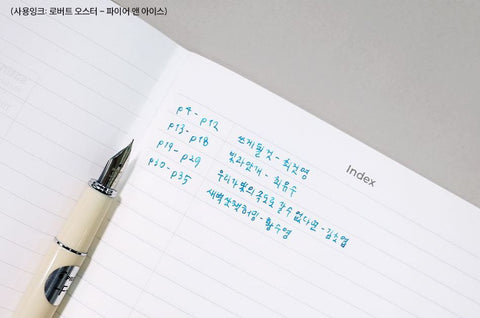 (사용잉크: 로버트 오스터 – 파이어 앤 아이스)
Index
p4 - p12 쓰게 될 것 - 최진영
p13 - p18 빛과 안개 - 최유수
p19 - p29 우리가 빛의 속도로 갈 수 없다면 - 김초엽
p30 - p35 새벽 산책 허밍 - 황수영